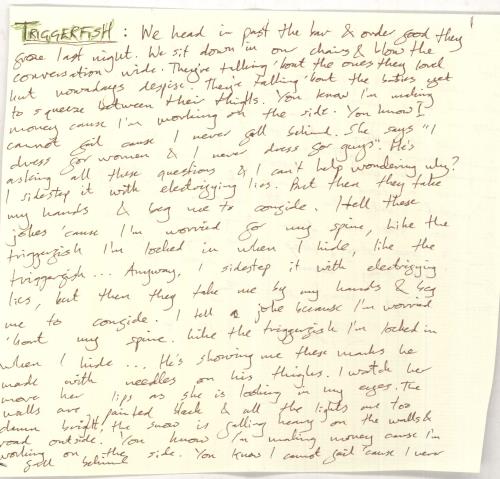 1
TRIGGERFISH : We head in past the bar & order food they
froze last night. We sit down in our chairs & blow the
conversation wide. They're talking 'bout the ones they loved
but nowadays despise. They're talking 'bout the bodies yet
to squeeze between their thighs. You know I'm making
money cause I'm working on the side. You know I
cannot fail cause I never fall behind. She says "I
dress for women & I never dress for guys". He's
asking all these questions & I can't help wondering why?
I sidestep it with electrifying lies. But then they take
my hands & beg me to confide. I tell these
jokes 'cause I'm worried for my spine, Like the
triggerfish I'm locked in when I hide, like the
triggerfish... Anyway, I sidestep it with electrifying
lies, but then they take me by my hands & beg
me to confide. I tell a joke because I'm worried
'bout my spine. Like the triggerfish I'm locked in
when I hide... He's showing me these marks he
made with needles on his thighs. I watch her
move her lips as she is looking in my eyes. The
walls are painted black & all the lights are too
damn bright, the snow is falling heavy on the walls &
road outside. You know I'm making money cause I'm
working on the side. You know I cannot fail 'cause I never
fall behind